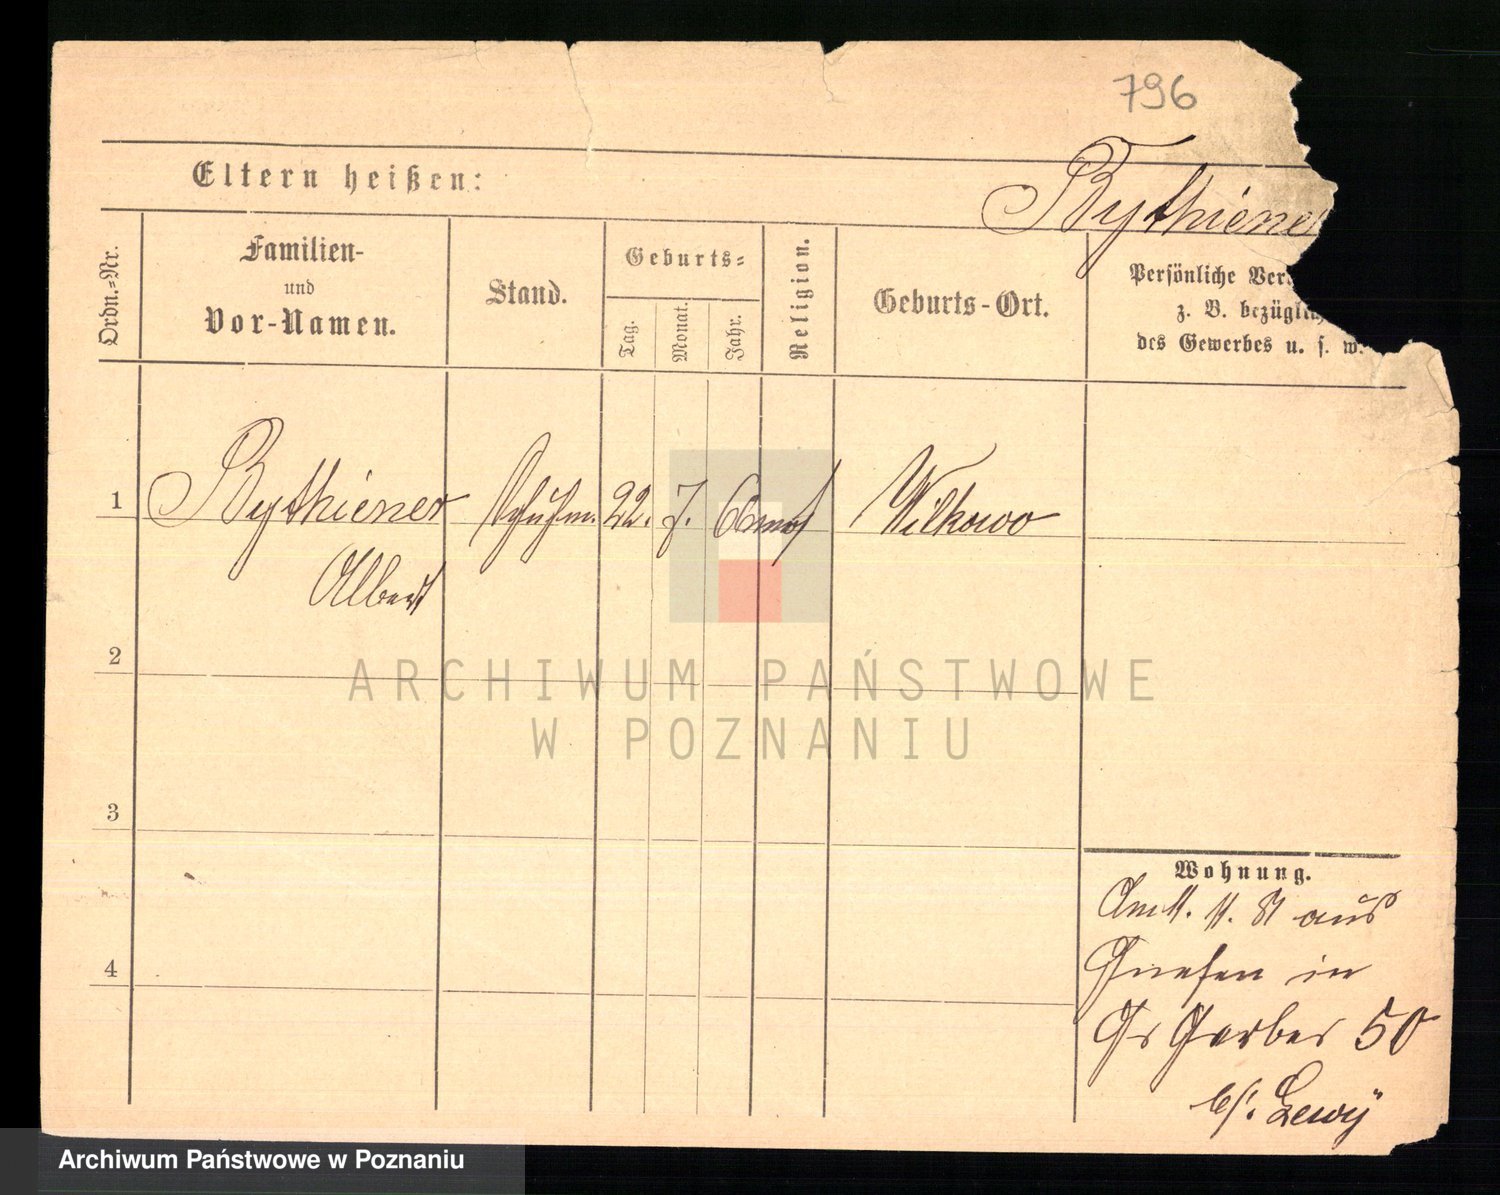 796
Eltern heißen:
Bythiener
Ordn.-Nr.
Familien-
und
Vor-Namen.
Stand.
Geburts-
Tag.
Monat.
Jahr.
Religion.
Geburts-Ort.
Persönliche Ver
z. B. bezüglich
des Gewerbes u. s. w.
1
Bythiener
Albert
Schuhm.
22.
7.
60
mos
Wilkowo
2
3
4
Wohnung.
aus
Gnesen in
Gr Gerber 50
b/. Lewy
ARCHIWUM PAŃSTWOWE
W POZNANIU
Archiwum Państwowe w Poznaniu